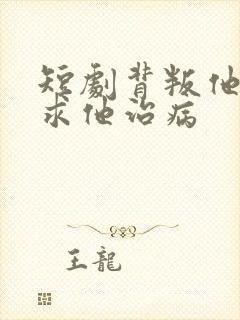 短劇背叛他
求他治病
王龍